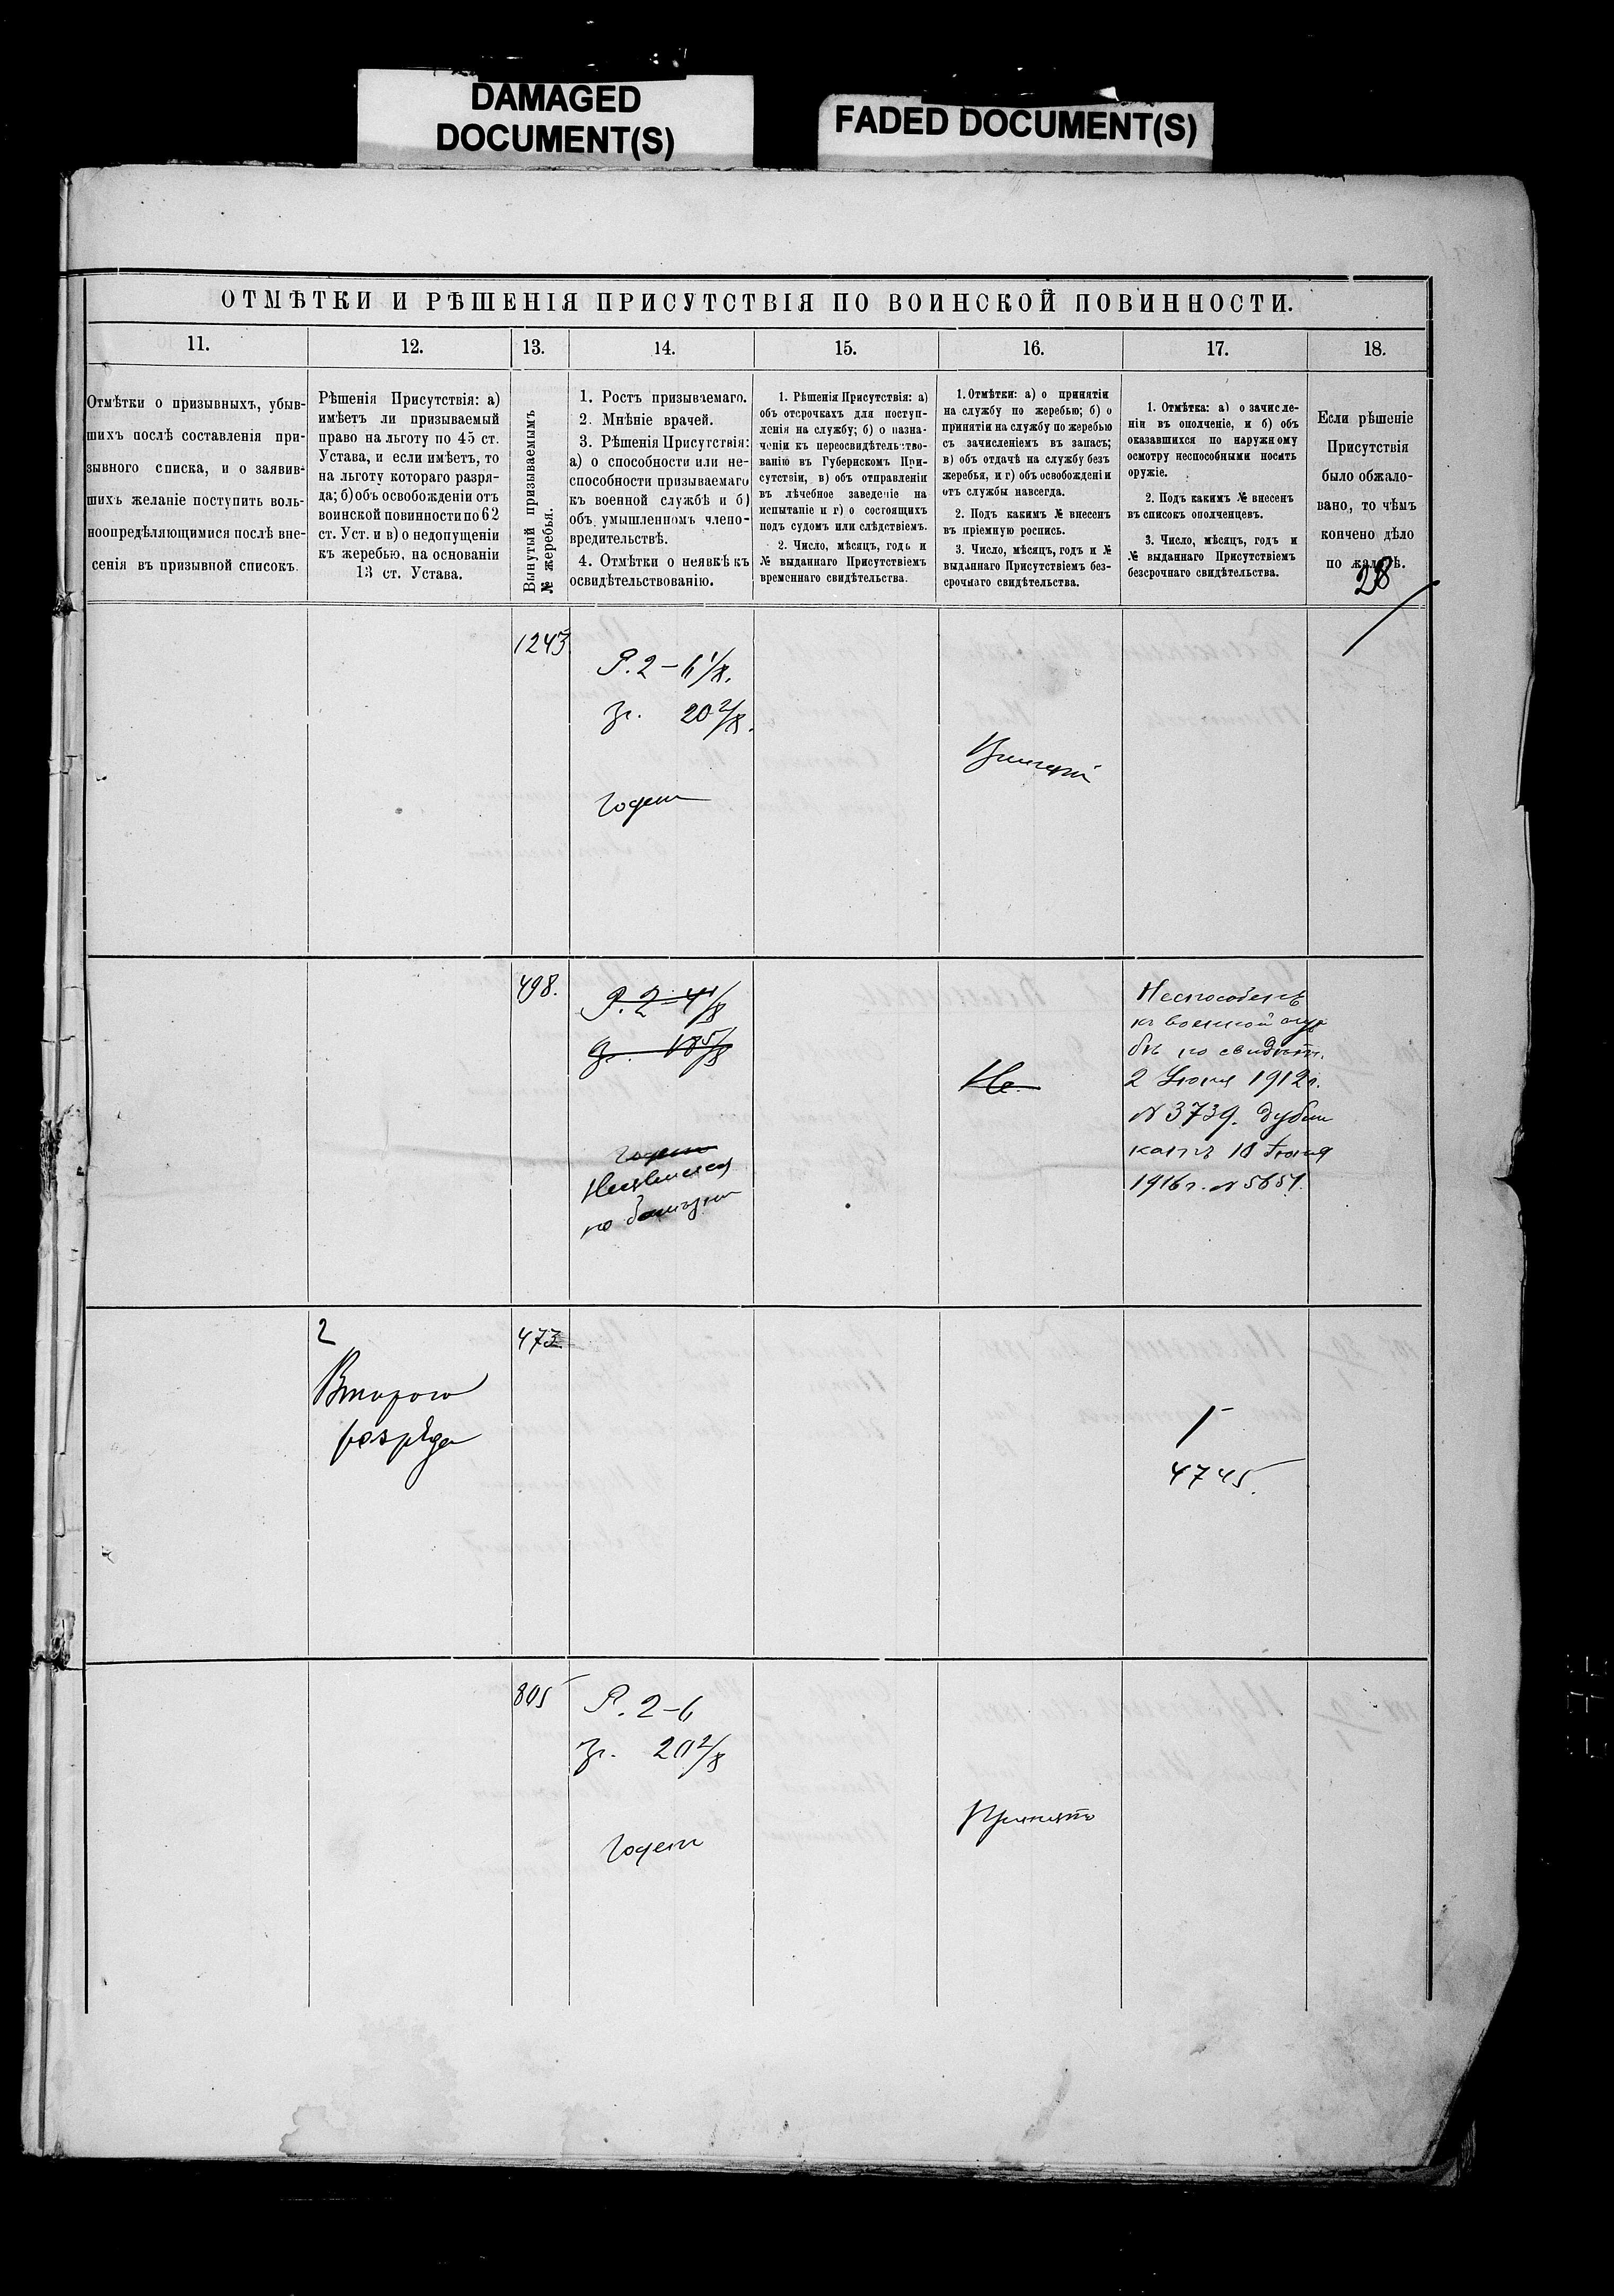 DAMAGED
DOCUMENT(S)
FADED DOCUMENT(S)
ОТМѢТКИ И РѢШЕНІЯ ПРИСУТСТВІЯ ПО ВОИНСКОЙ ПОВИННОСТИ.
11.
12.
13.
14.
15.
16.
17.
18.
Отмѣтки о призывныхъ, убыв-
шихъ послѣ составленія при-
зывного списка, и о заявив-
шихъ желаніе поступить воль-
ноопредѣляющимися послѣ вне-
сенія въ призывной списокъ.
Рѣшенія Присутствія: а)
имѣетъ ли призываемый
право на льготу по 45 ст.
Устава, и если имѣетъ, то
на льготу котораго разря-
да; б) объ освобожденіи отъ
воинской повинности по 62
ст. Уст. и в) о недопущеніи
къ жеребью, на основаніи
13 ст. Устава.
Вынутый призываемымъ
№ жеребья.
1. Ростъ призываемаго.
2. Мнѣніе врачей.
3. Рѣшенія Присутствія:
а) о способности или не-
способности призываемаго
къ военной службѣ и б)
объ умышленномъ члено-
вредительствѣ.
4. Отмѣтки о неявкѣ къ
освидѣтельствованію.
1. Рѣшенія Присутствія: а)
объ отсрочкахъ для поступ-
ленія на службу; б) о назна-
ченіи къ переосвидѣтельство-
ванію въ Губернскомъ При-
сутствіи, в) объ отправленіи
въ лѣчебное заведеніе на
испытаніе и г) о состоящихъ
подъ судомъ или слѣдствіемъ.
2. Число, мѣсяцъ, годъ и
№ выданнаго Присутствіемъ
временнаго свидѣтельства.
1. Отмѣтки: а) о принятіи
на службу по жеребью; б) о
принятіи на службу по жеребью
съ зачисленіемъ въ запасъ;
в) объ отдачѣ на службу безъ
жеребья, и г) объ освобожденіи
отъ службы навсегда.
2. Подъ какимъ № внесенъ
въ пріемную роспись.
3. Число, мѣсяцъ, годъ и №
выданнаго Присутствіемъ без-
срочнаго свидѣтельства.
1. Отмѣтка: а) о зачисле-
ніи въ ополченіе, и б) объ
оказавшихся по наружному
осмотру неспособными носить
оружіе.
2. Подъ какимъ № внесенъ
въ списокъ ополченцевъ.
3. Число, мѣсяцъ, годъ и
№ выданнаго Присутствіемъ
безсрочнаго свидѣтельства.
Если рѣшеніе
Присутствія
было обжало-
вано, то чѣмъ
кончено дѣло
по жалобѣ.
28
1243
Р. 2 – 6 1/8.
Гр. 20 2/8.
Годенъ
498.
Р. 2 – 4 1/8
Гр. 18 5/8
Годенъ
Неявился
по болѣзни
Не
Неспособенъ
къ военной служ
бѣ по свидѣт.
2 Іюня 1912г.
№ 3739. Дубли
катъ 18 Іюня
1916 г. № 5651.
2
Второго
разряда
473
1
4745.
805
Р. 2–6
Гр. 20 2/8
Годенъ
Принятъ